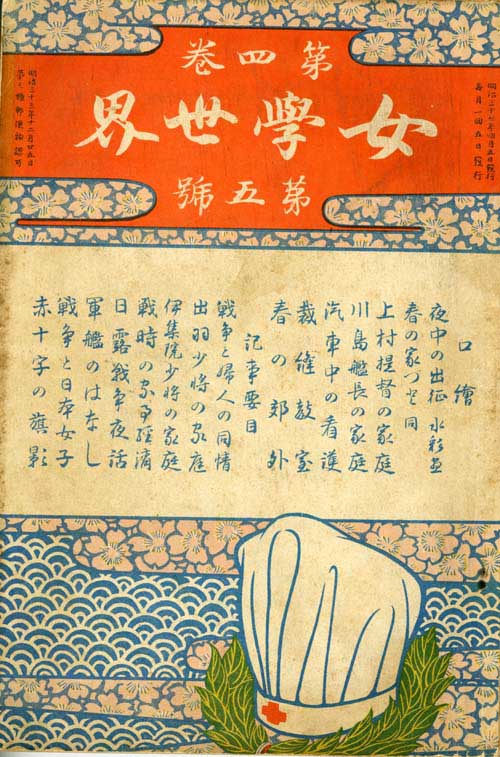 第四卷
女學世界
第五號
明治三十七年四月五日發行
毎月一回五日發行
明治三十三年十二月廿五日
第三種郵便物認可
口繪
夜中の出征 水彩画
春の家づと 同
上村提督の家庭
川島艦長の家庭
汽車中の看護
裁縫教室
春の郊外
記事要目
戦争と婦人の同情
出羽少将の家庭
伊集院少将の家庭
戦時の家事経済
日露戦争夜話
軍艦のはなし
戦争と日本女子
赤十字の旗影